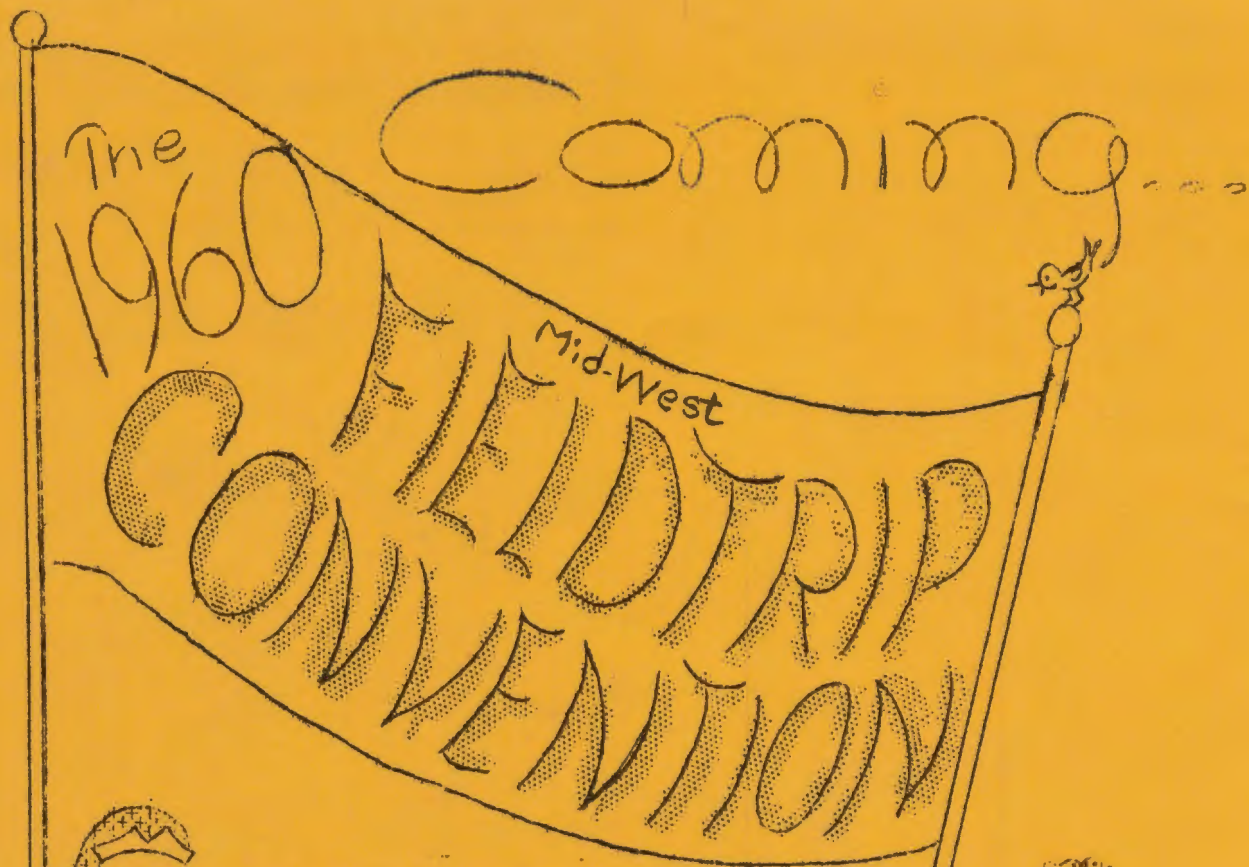 Coming...
The
1960
Mid-West
FIELD TRIP
CONVENTION